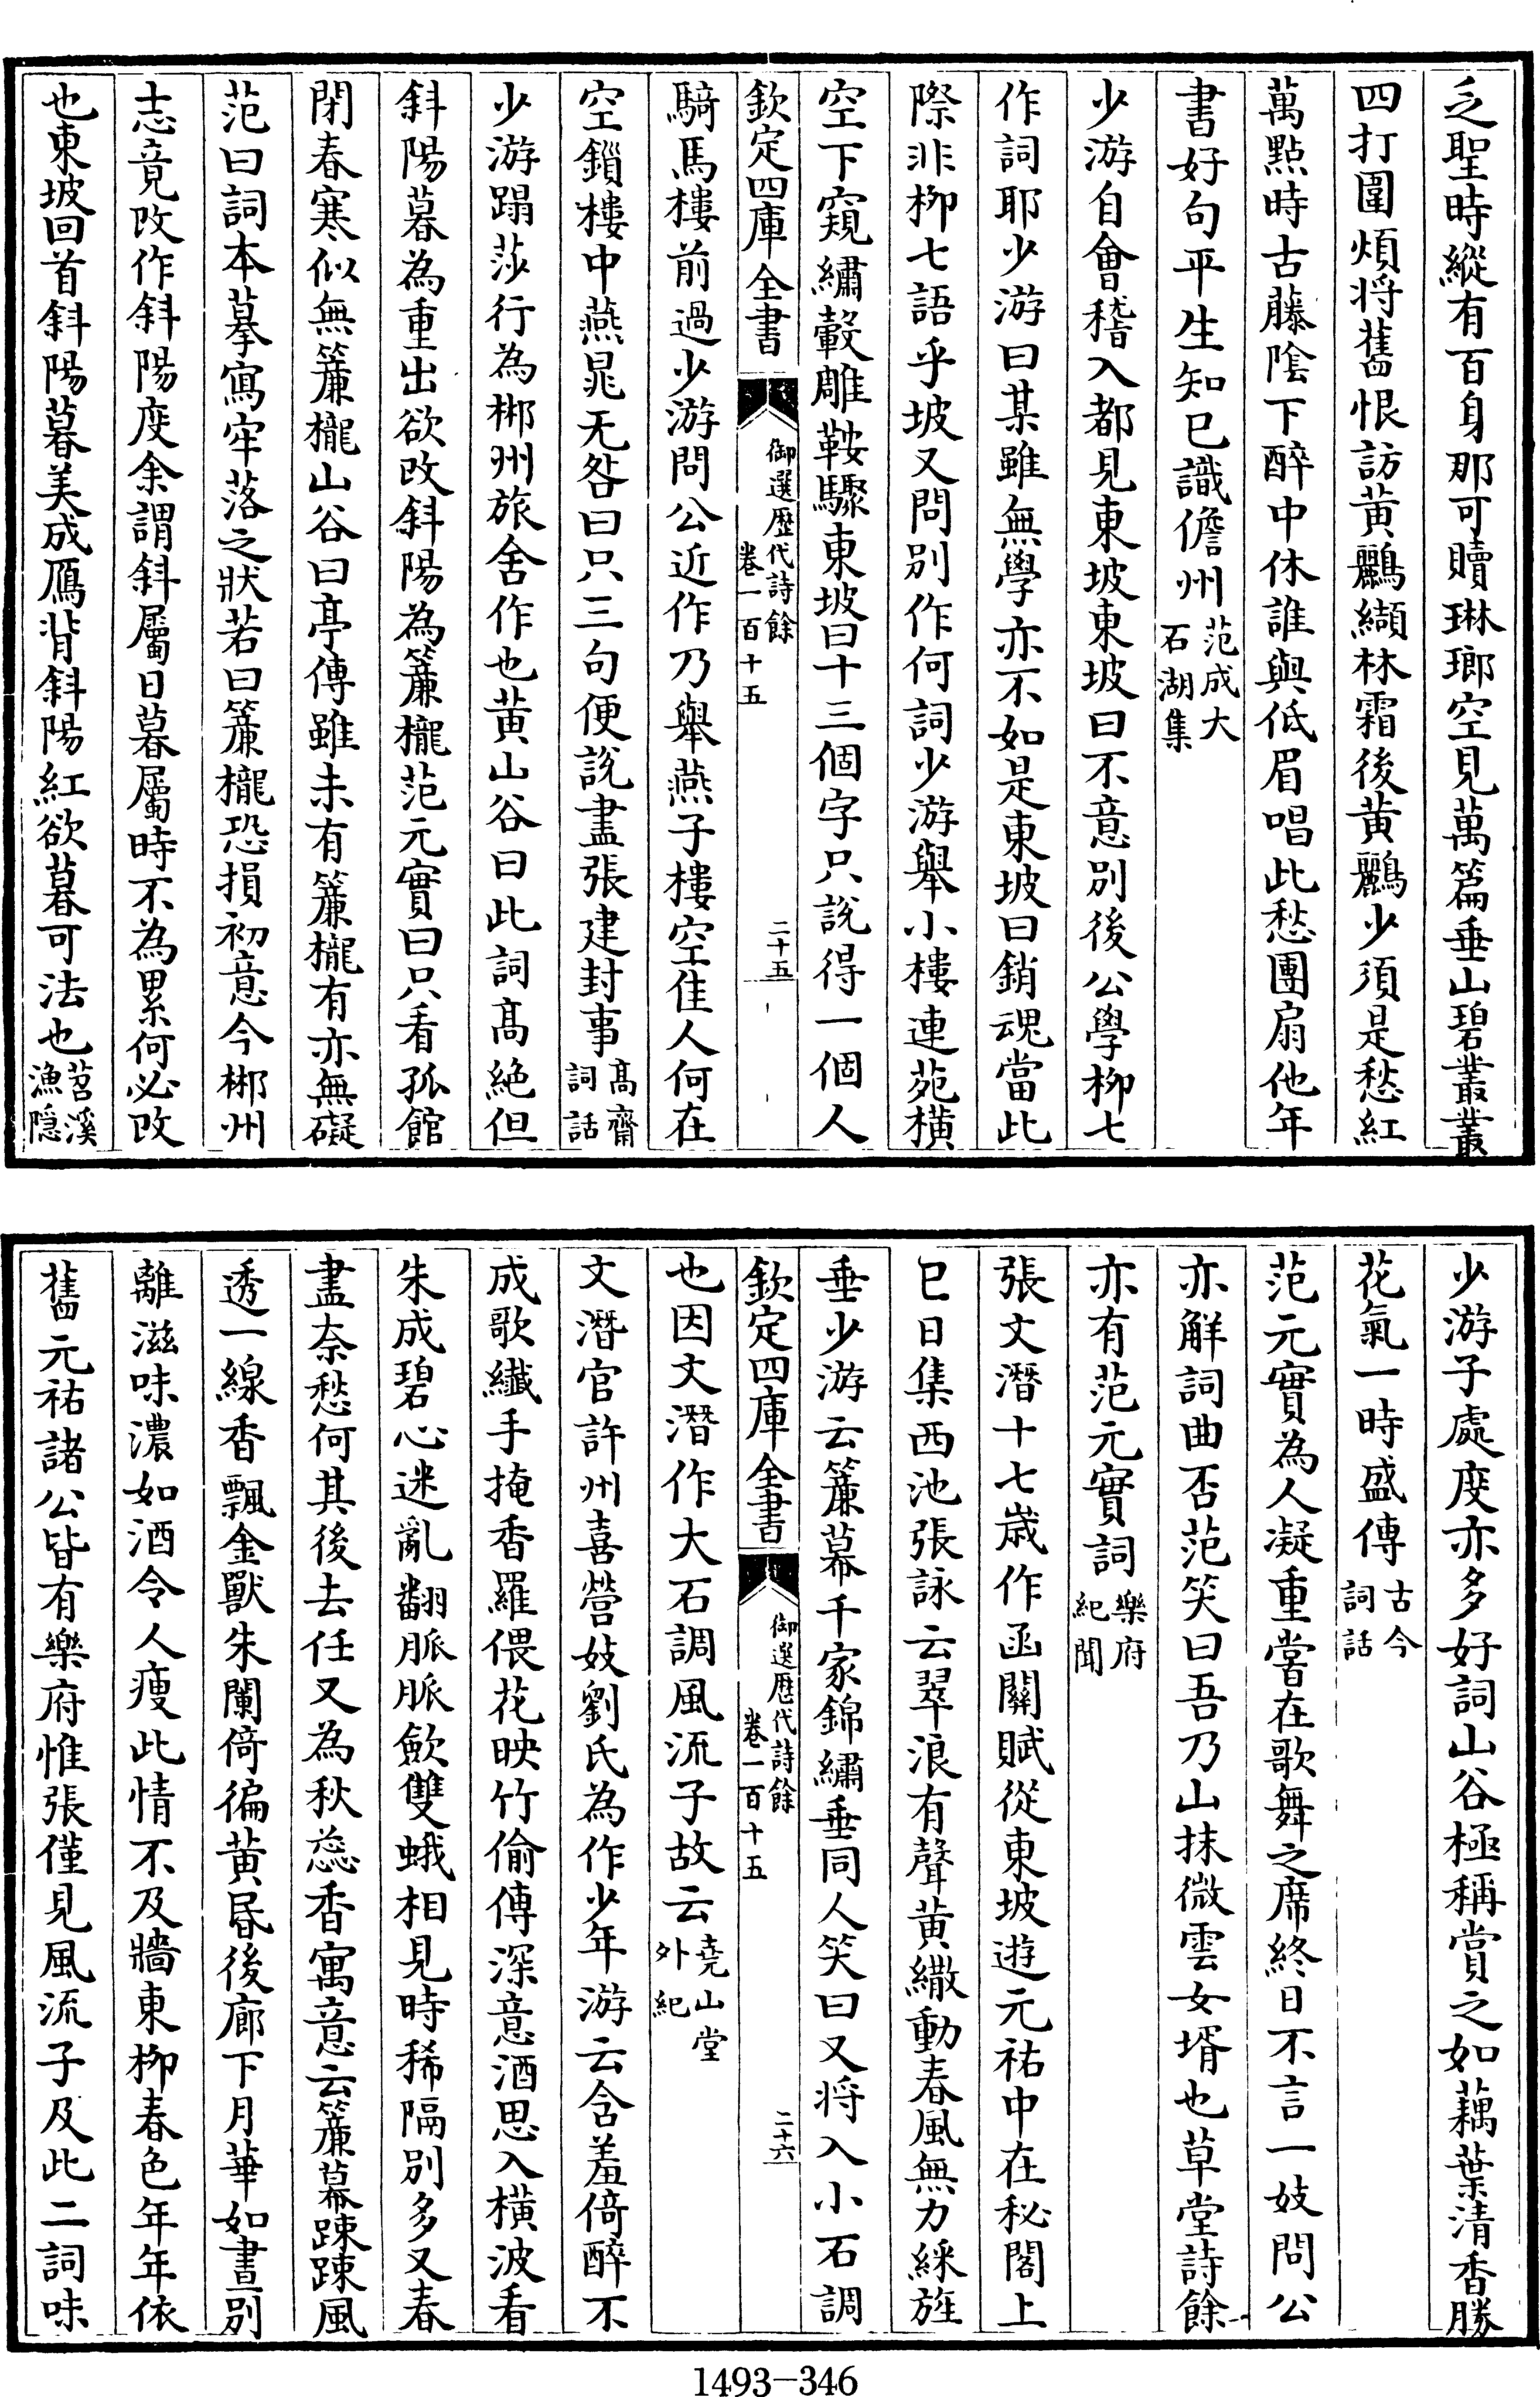 乏聖時縱有百身那可贖琳瑯空見萬篇垂山碧叢叢
四打圍煩將舊恨訪黃鸝纈林霜後黃鸝少須是愁紅
萬點時古藤陰下醉中休誰與低眉唱此愁團扇他年
書好句平生知已識儋州范成大石湖集
少游自會稽入都見東坡東坡曰不意別後公學柳七
作詞耶少游曰某雖無學亦不如是東坡曰銷魂當此
際非柳七語乎坡又問別作何詞少游舉小樓連苑橫
空下窺繡轂雕鞍驟東坡曰十三個字只說得一個人
欽定四庫全書 御選歷代詩餘 卷一百十五 二十五
騎馬樓前過少游問公近作乃舉燕子樓空佳人何在
空鎖樓中燕晁无咎曰只三句便說盡張建封事高齋詞話
少游蹋莎行為郴州旅舍作也黃山谷曰此詞高絶但
斜陽暮為重出欲改斜陽為簾櫳范元實曰只看孤館
閉春寒似無簾櫳山谷曰亭傳雖未有簾櫳有亦無礙
范曰詞本摹寫牢落之狀若曰簾櫳恐損初意今郴州
志竟改作斜陽度余謂斜屬日暮屬時不為累何必改
也東坡回首斜陽暮美成鴈背斜陽紅欲暮可法也苕溪漁隱
少游子處度亦多好詞山谷極稱賞之如藕葉清香勝
花氣一時盛傳古今詞話
范元實為人凝重嘗在歌舞之席終日不言一妓問公
亦解詞曲否范笑曰吾乃山抹微雲女壻也草堂詩餘
亦有范元實詞樂府紀聞
張文潛十七歲作函關賦從東坡遊元祐中在秘閣上
巳日集西池張詠云翠浪有聲黃繖動春風無力綵旌
垂少游云簾幕千家錦繡垂同人笑曰又將入小石調
欽定四庫全書 御選歷代詩餘 卷一百十五 二十六
也因文潛作大石調風流子故云堯山堂外紀
文潛官許州喜營妓劉氏為作少年游云含羞倚醉不
成歌纖手掩香羅偎花映竹偷傳深意酒思入橫波看
朱成碧心迷亂翻脈脈歛雙蛾相見時稀隔別多又春
盡奈愁何其後去任又為秋蕊香寓意云簾幕踈踈風
透一線香飄金獸朱闌倚徧黃昏後廊下月華如晝別
離滋味濃如酒令人瘦此情不及牆東柳春色年年依
舊元祐諸公皆有樂府惟張僅見風流子及此二詞味
1493-346